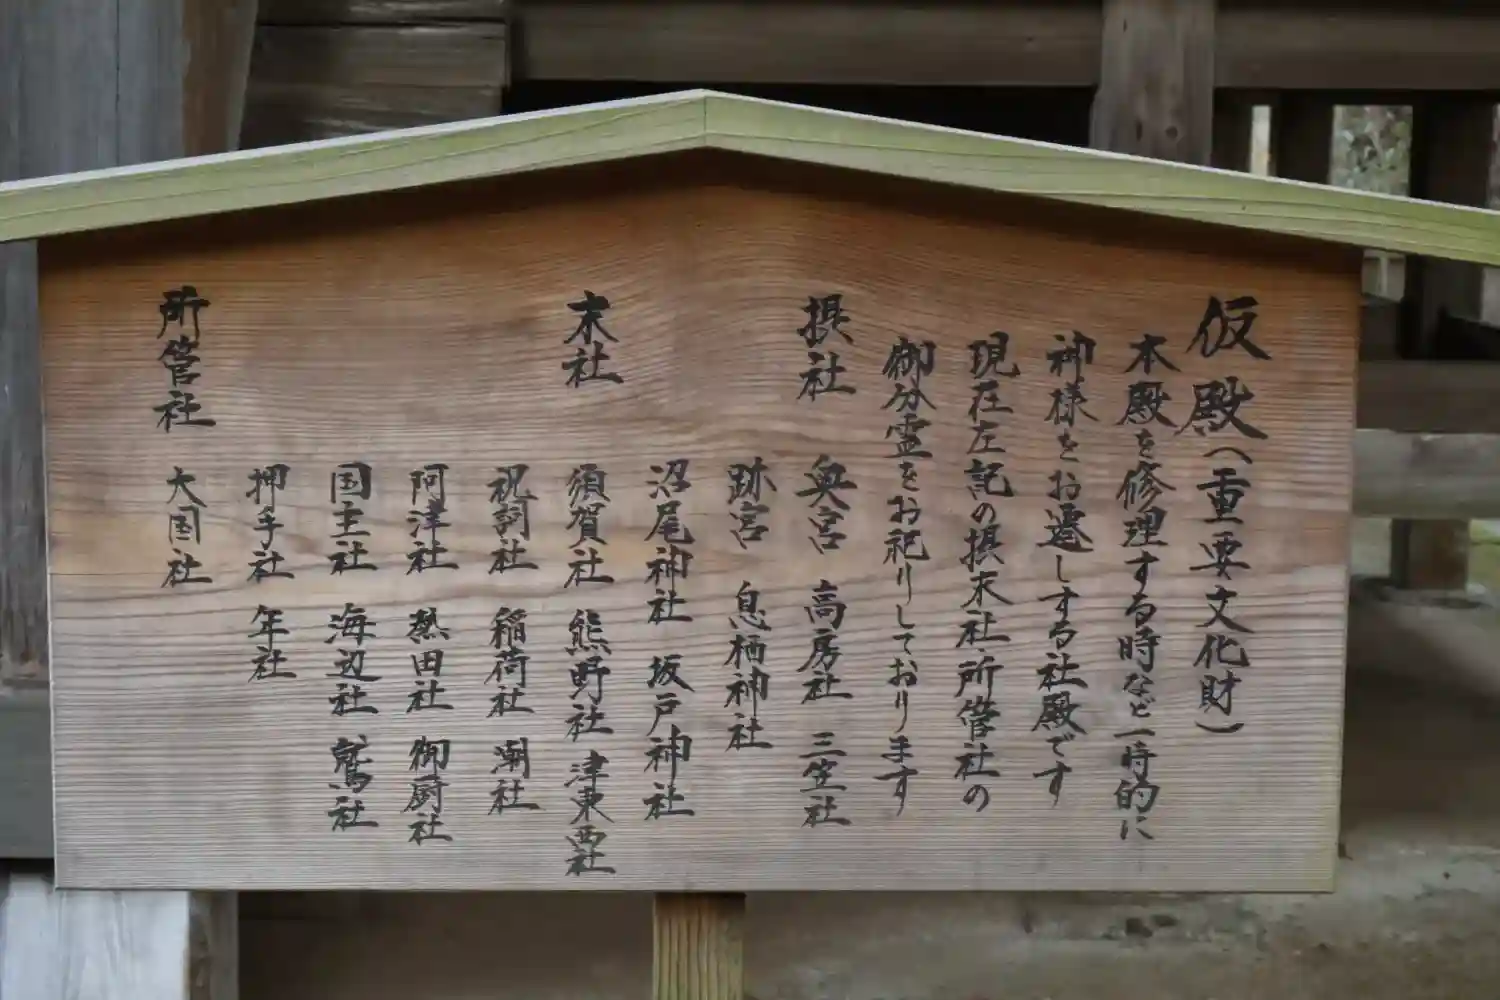 仮殿(重要文化財)
本殿を修理する時など一時的に
神様をお遷しする社殿です
現在左記の摂末社・所管社の
御分霊をお祀りしております
摂社 奥宮 高房社 三笠社
跡宮 息栖神社
沼尾神社 坂戸神社
末社 須賀社 熊野社 津東西社
祝詞社 稲荷社 潮社
阿津社 熱田社 御厨社
国主社 海辺社 鷲社
押手社 年社
所管社 大国社